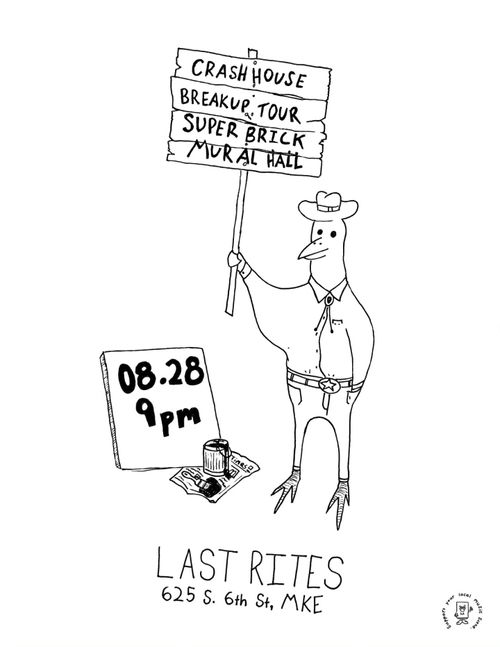 CRASH HOUSE
BREAKUP TOUR
SUPER BRICK
MURAL HALL
08.28
9pm
TIMES
LAST RITES
625 S. 6th St, MKE
Support your local music scene